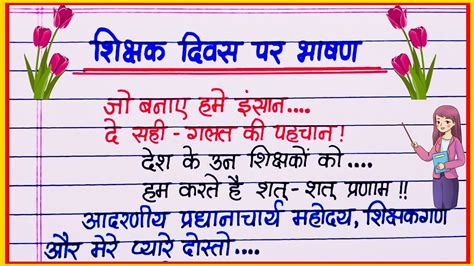 शिक्षक दिवस पर भाषण
जो बनाए हमे इंसान....
दे सही - गलत की पहचान!
देश के उन शिक्षकों को....
हम करते है शत् - शत् प्रणाम !!
आदरणीय प्रधानाचार्य महोदय, शिक्षकगण
और मेरे प्यारे दोस्तो....